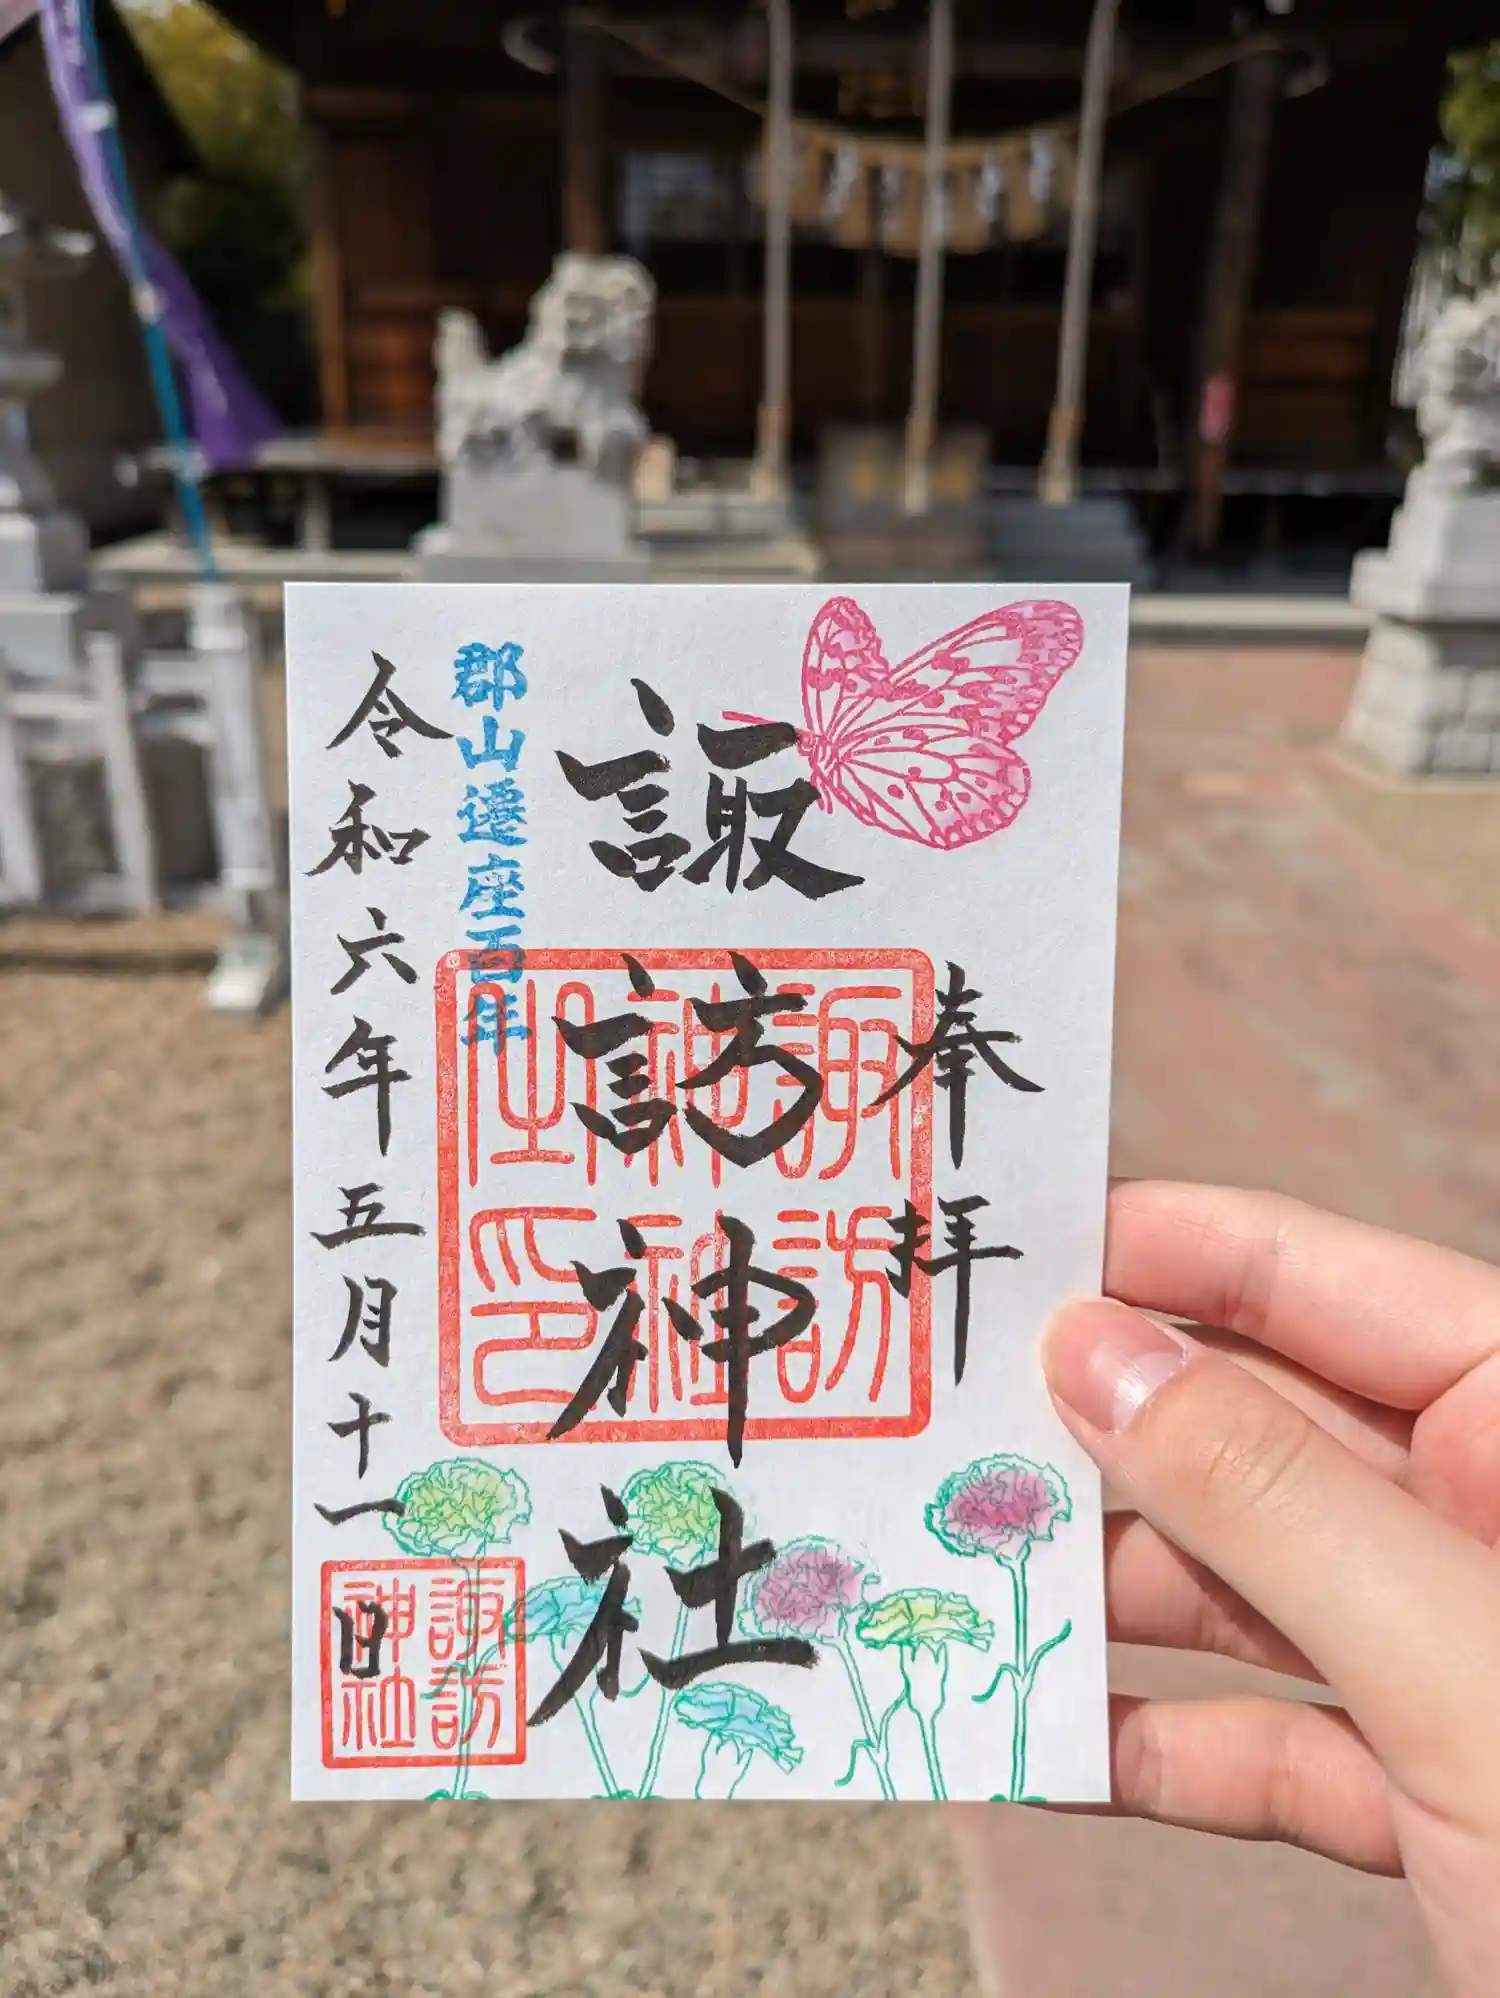 奉拝
諏訪神社
諏訪
神社
之印
郡山遷座百年
令和六年五月十一日
諏訪
神社